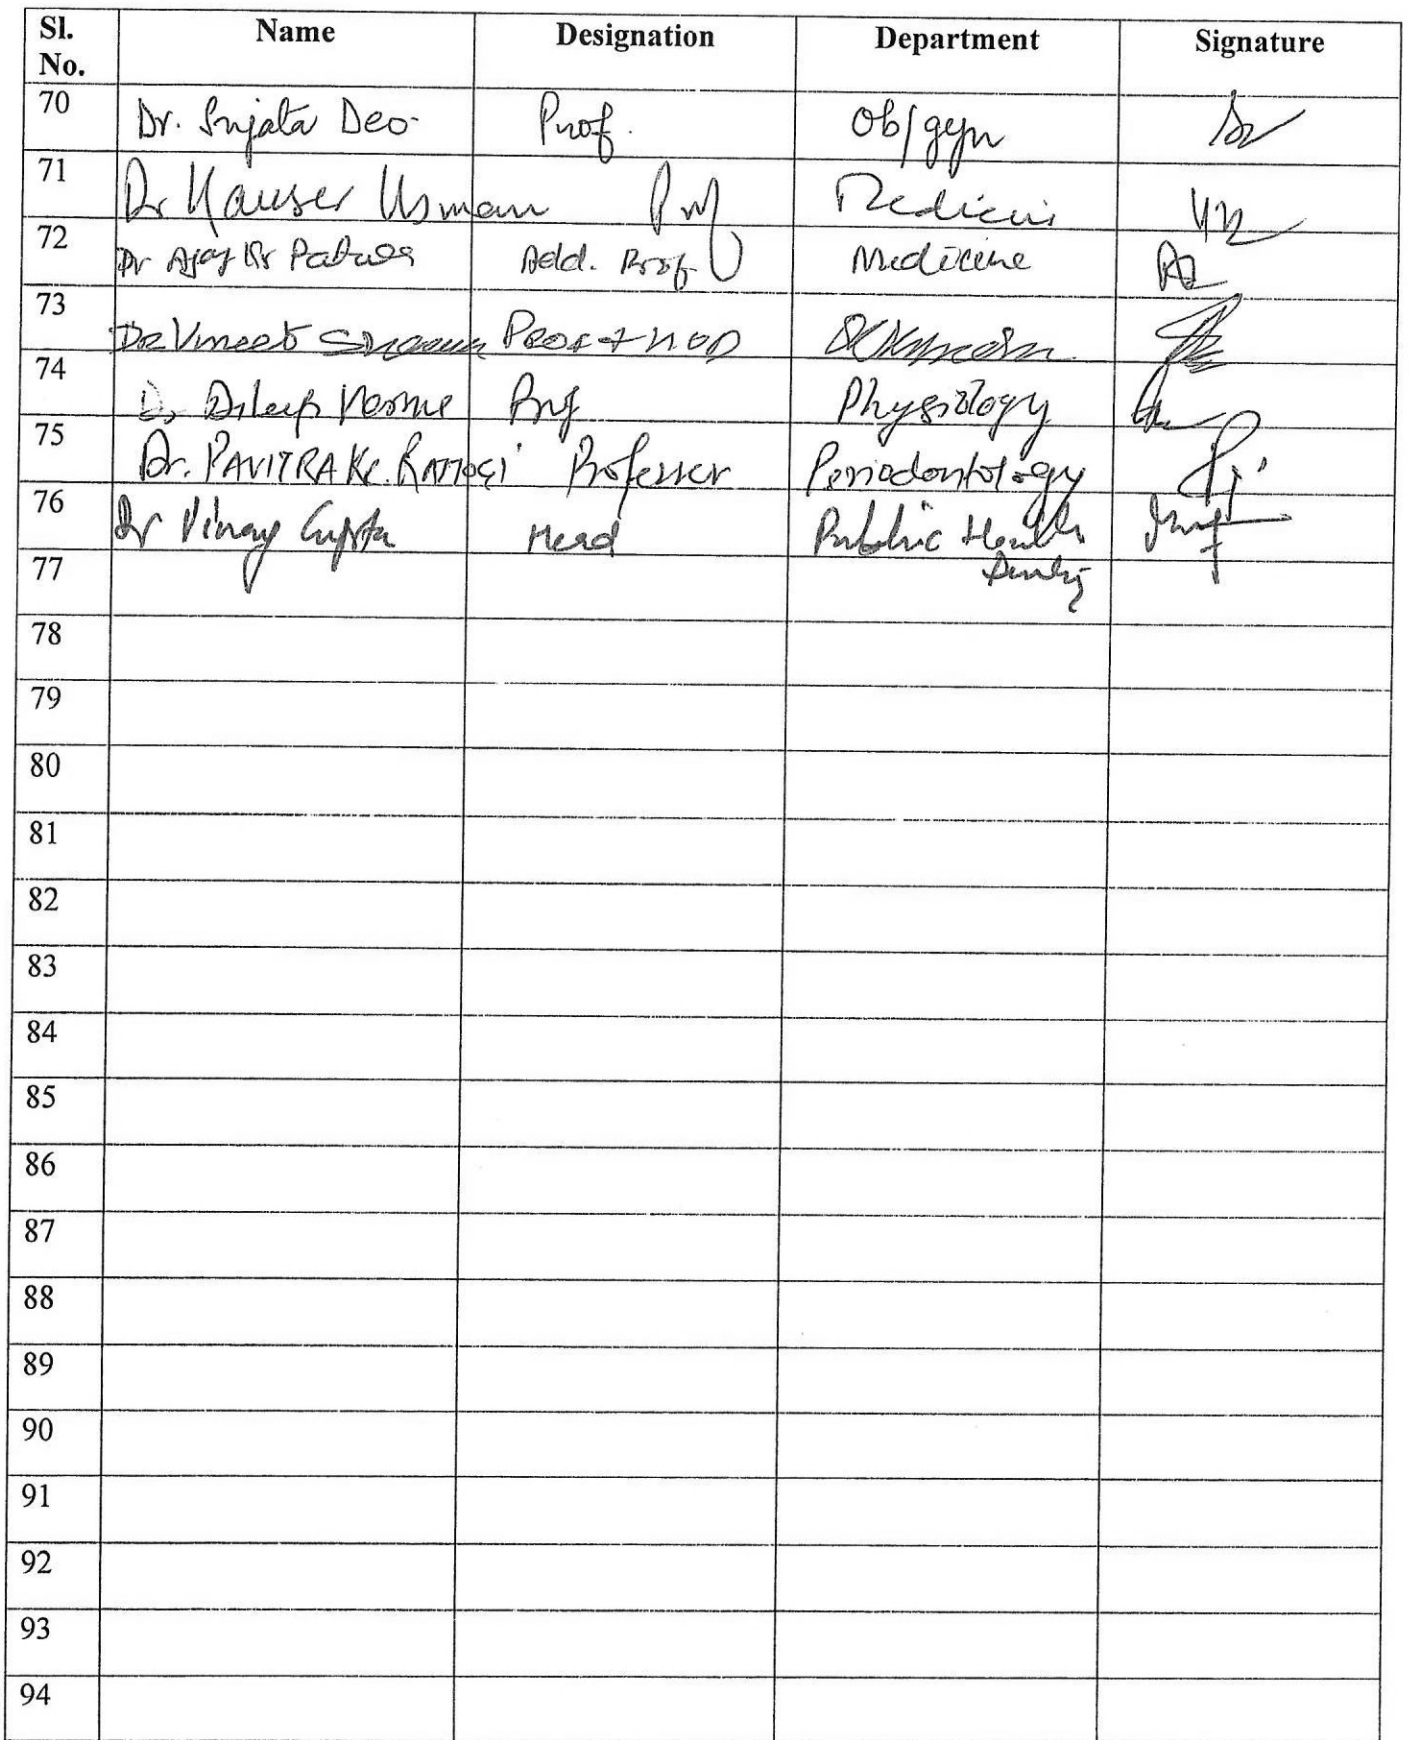 Sl. No. Name Designation Department Signature
70 Dr. Sujata Deo Prof. Ob/gyn
71 Dr Kauser Usman Prof Medicine
72 Dr Ajay Kr Patwa Add. Prof Medicine
73 Dr Vineet Sharma Prof + HOD
74 Dr Dileep Verma Prof Physiology
75 Dr. PAVITRA Kr. RASTOGI Professor Periodontology
76 Dr Vinay Gupta Head Public Health
77 Dentistry
78
79
80
81
82
83
84
85
86
87
88
89
90
91
92
93
94